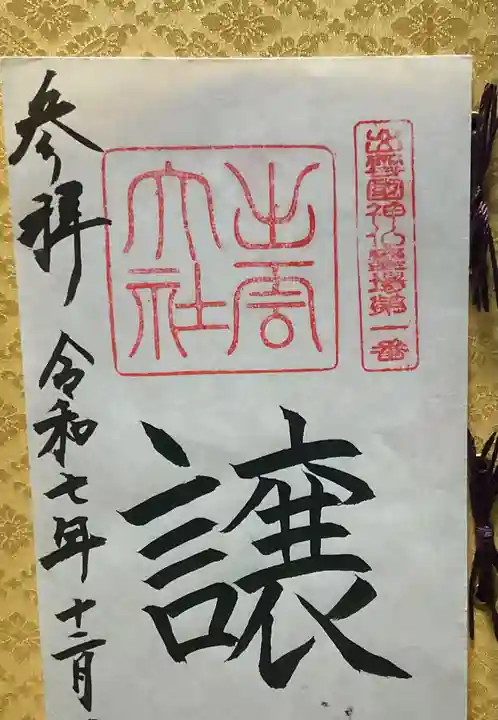 出雲國神仏霊場第一番
出雲
大社
譲
参拝 令和七年十二月